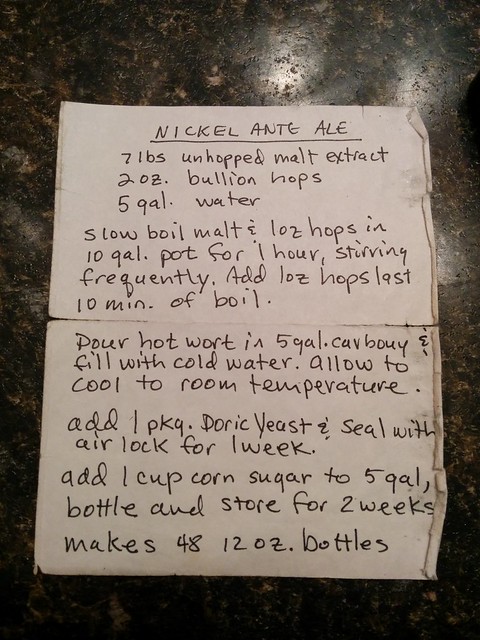 NICKEL ANTE ALE
7 lbs unhopped malt extract
2 oz. bullion hops
5 gal. water
slow boil malt & 1oz hops in
10 gal. pot for 1 hour, stirring
frequently. Add 1oz hops last
10 min. of boil.
Pour hot wort in 5 gal. carbouy &
fill with cold water. allow to
cool to room temperature.
add 1 pkg. Doric Yeast & seal with
air lock for 1 week.
add 1 cup corn sugar to 5 gal,
bottle and store for 2 weeks
makes 48 12 oz. bottles